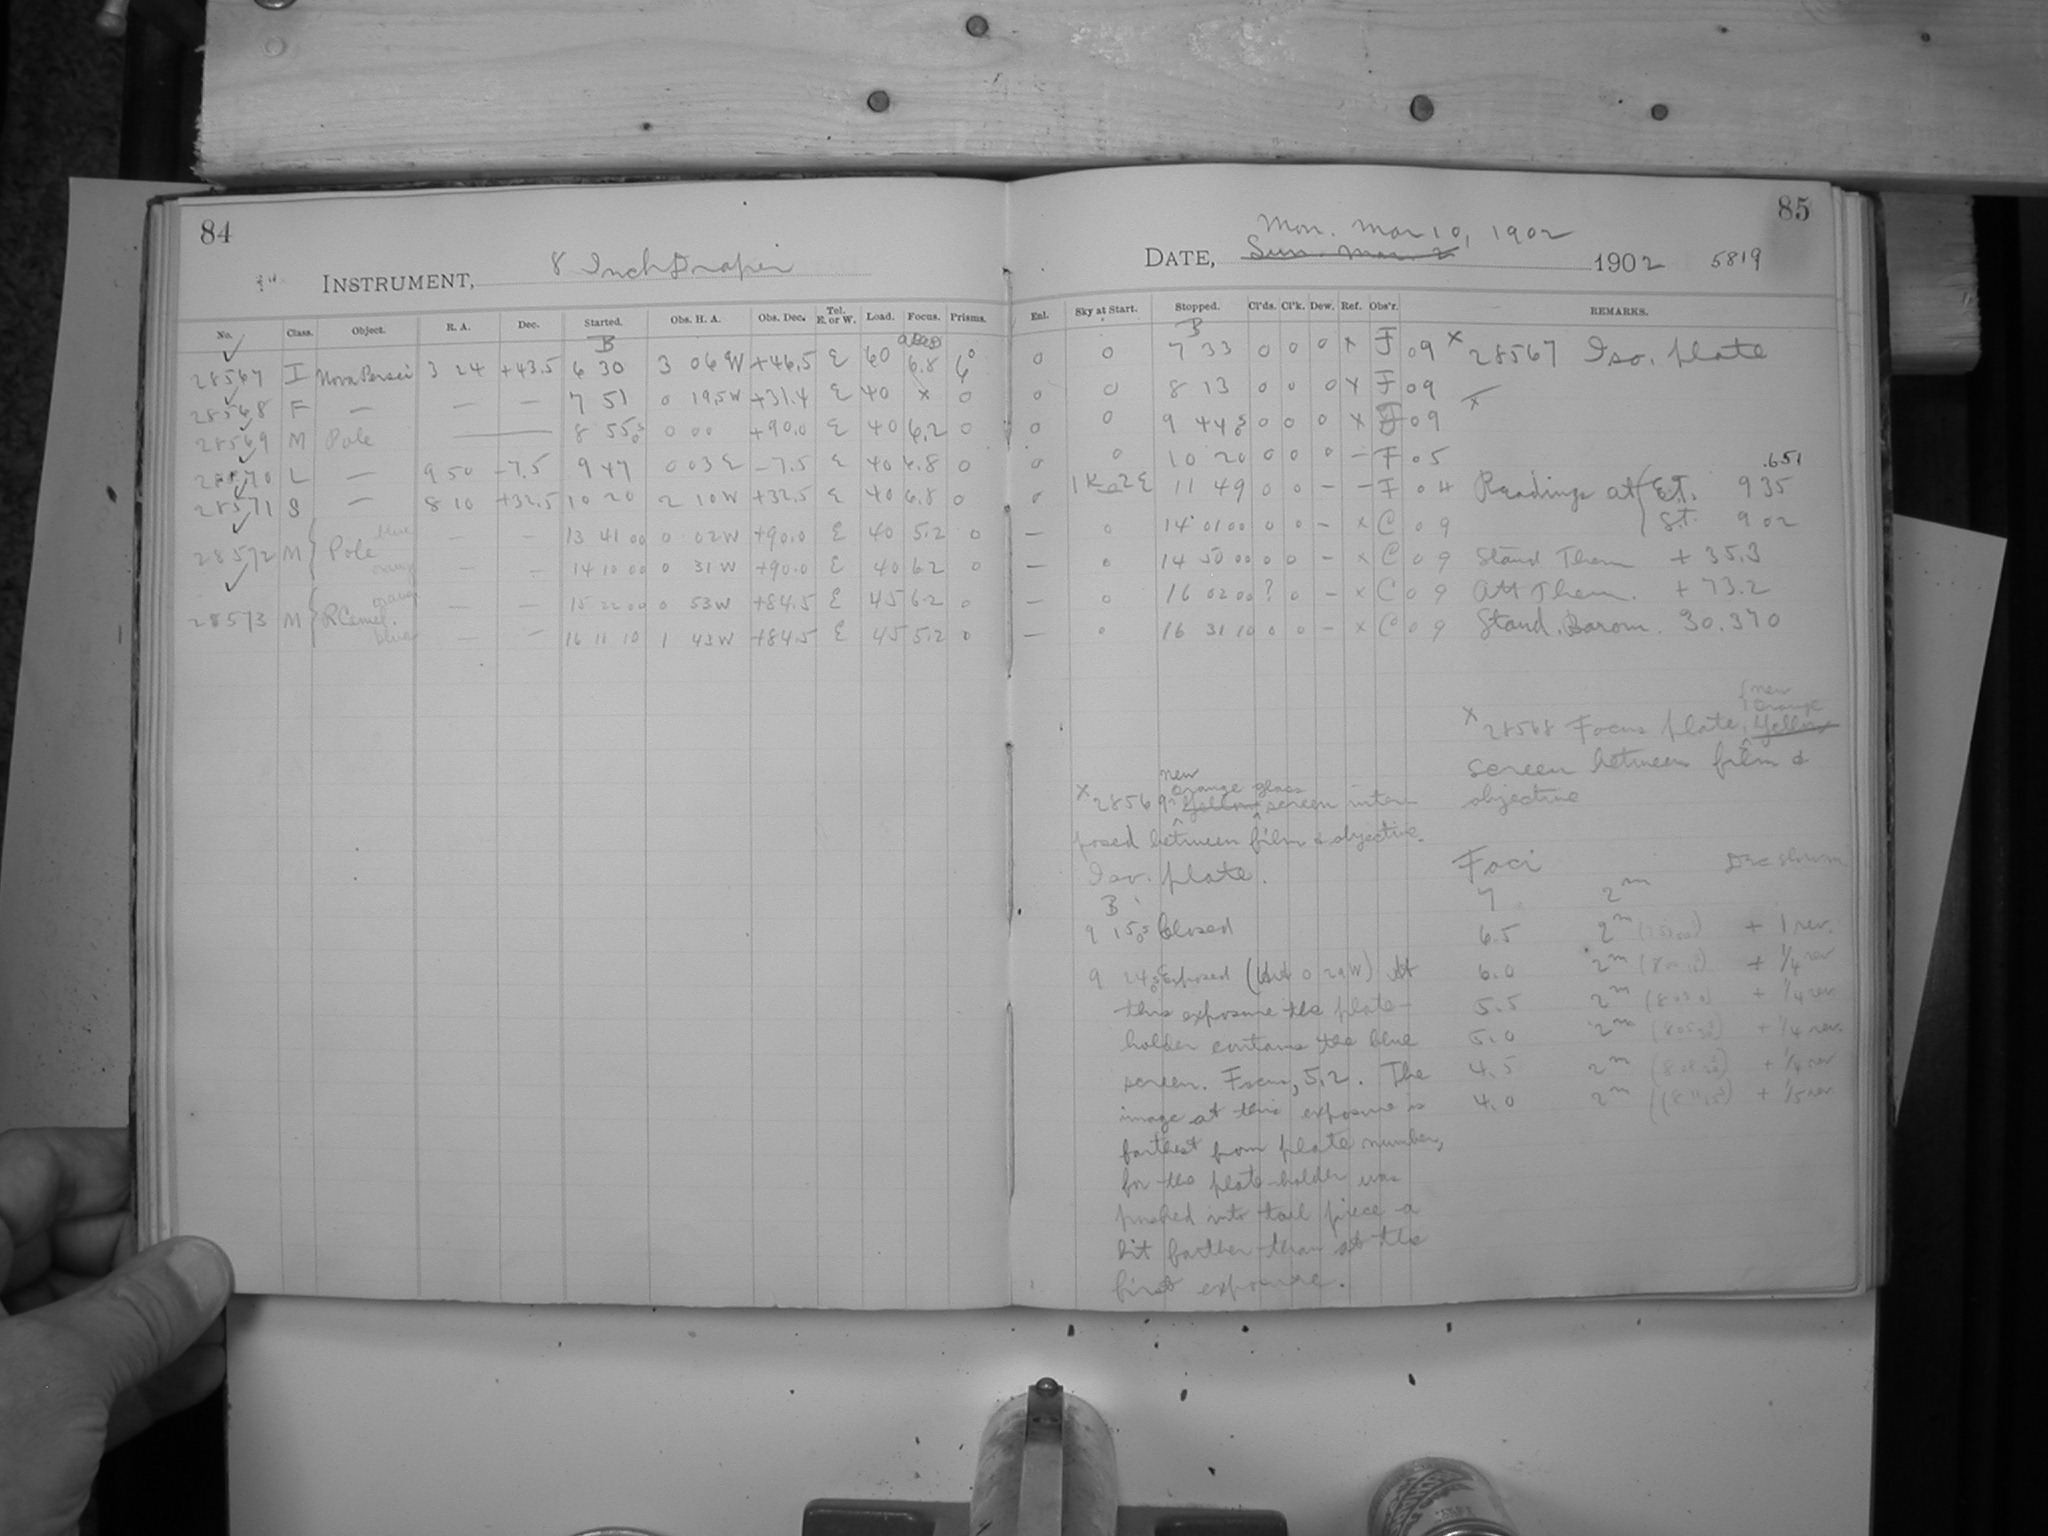 84
INSTRUMENT, 8 Inch Draper
No. Class. Object. R. A. Dec. Started. Obs. H. A. Obs. Dec. Tel. E. or W. Load. Focus. Prisms.
B
28567 I Nova Persei 3 24 +43.5 6 30 3 06 W +46.5 E 60 6.8 0
28568 F — — — 7 51 0 19.5W +31.4 E 40 x 0
28569 M Pole — 8 55 0 00 +90.0 E 40 6.2 0
28570 L — 9 50 -7.5 9 47 0 03 E -7.5 E 40 6.8 0
28571 S — 8 10 +32.5 10 20 2 10 W +32.5 E 40 6.8 0
28572 M { Pole blue — — 13 41 00 0 02W +90.0 E 40 5.2 0
orange — — 14 10 00 0 31 W +90.0 E 40 6.2 0
28573 M { R Camel. orange — — 15 22 00 0 53W +84.5 E 45 6.2 0
blue — — 16 11 10 1 43W +84.5 E 45 5.2 0
85
Mon. Mar 10, 1902
DATE, Sun. Mar. 2 1902 5819
Enl. Sky at Start. Stopped. Cl'ds. Cl'k. Dew. Ref. Obs'r. REMARKS.
B
0 0 7 33 0 0 0 x F 09 x 28567 Iso. plate
0 0 8 13 0 0 0 x F 09 x
0 0 9 44 0 0 0 x F 09
0 0 10 20 0 0 0 — F 05 .651
0 11 49 0 0 — — F 04 Readings at { E.T. 9 35
— 0 14 01 00 0 0 — x C 09 S.T. 9 02
— 0 14 50 00 0 0 — x C 09 Stand Therm + 35.3
— 0 16 02 00 ? 0 — x C 09 Att Therm. + 73.2
— 0 16 31 10 0 0 — x C 09 Stand. Barom. 30.370
{ new
orange
x 28568 Focus plate, Yellow
screen between film &
objective
new
orange glass
x 28569 Yellow screen inter
posed between film & objective.
Iso. plate.
B
9 15 Closed
9 24 Exposed ( 0 29W) At
this exposure the plate-
holder contains the blue
screen. Focus, 5.2. The
image at this exposure is
farthest from plate number,
for the plate-holder was
pushed into tail piece a
bit farther than at the
first exposure.
Foci Dec slow m
7 2m
6.5 2m + 1 rev.
6.0 2m + 1/4 rev
5.5 2m + 1/4 rev
5.0 2m + 1/4 rev.
4.5 2m + 1/4 rev
4.0 2m + 1/5 rev